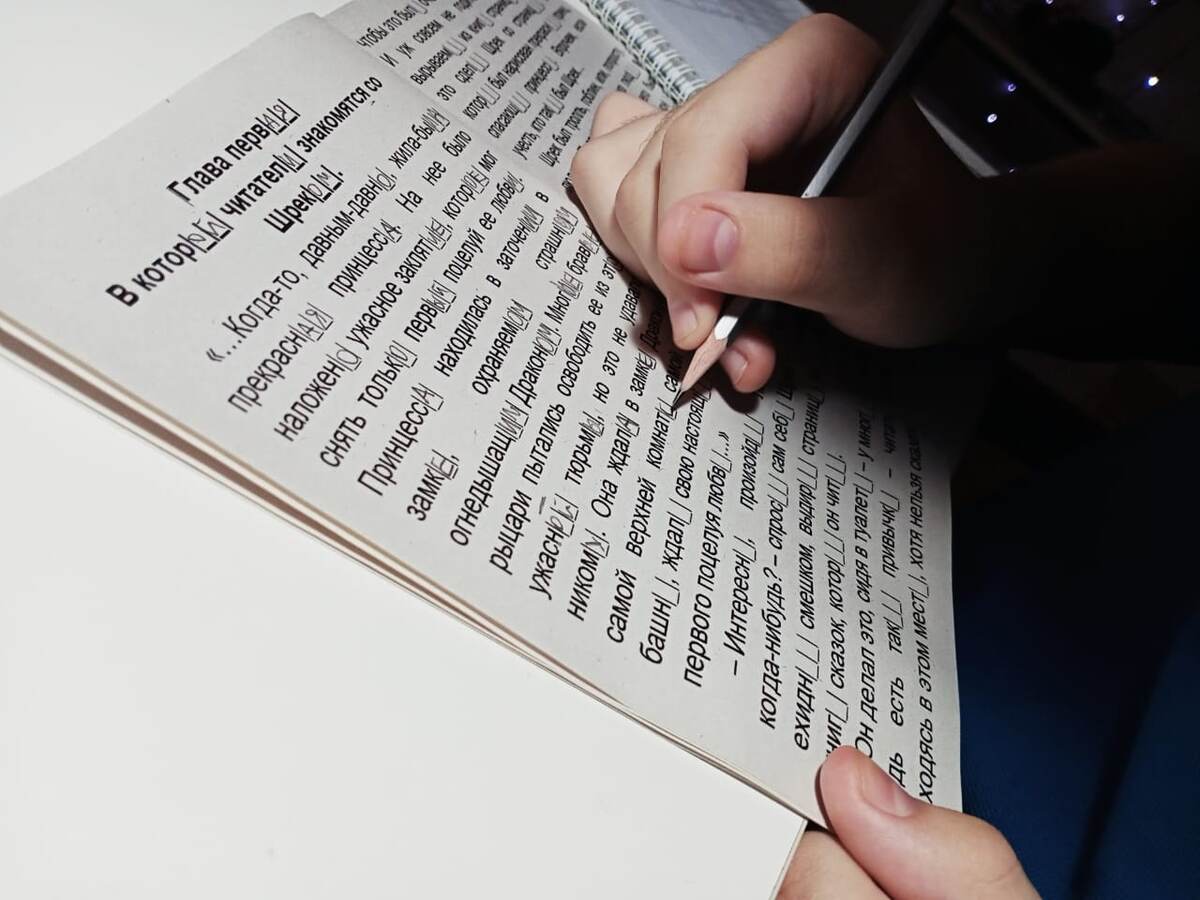 Глава первая
В которой читатели знакомятся со
Шреком.
«...Когда-то, давным-давно, жила-была
прекрасная принцесса. На нее было
наложено ужасное заклятие, которое мог
снять только первый поцелуй ее любви
Принцесса находилась в заточении в
замке, охраняемом страшным
огнедышащим Драконом. Многие
рыцари пытались освободить ее из
ужасной тюрьмы, но это не
никому. Она ждала в замке
самой верхней комнат_
башн_, ждал_ свою
первого поцелуя любв_...»
– Интересн_, произойд_
когда-нибудь? – спрос_ _ сам себ_
ехидн_ _ _ смешком, выдир_ _ страниц_
книг_ сказок, котор_ _ он чит_ _.
Он делал это, сидя в туалет_ – у мног_
есть так_ _ привычк_ –
находясь в этом мест_, хотя нельзя
чтобы это был
И уж совсем не
вырываем_ _ из
это сдел_ _ Шрек со
котор_ _ был нарисован
спасающ_ _ принцесс_.
учесть, кто так_ _ был Шрек.
Шрек был тролль,